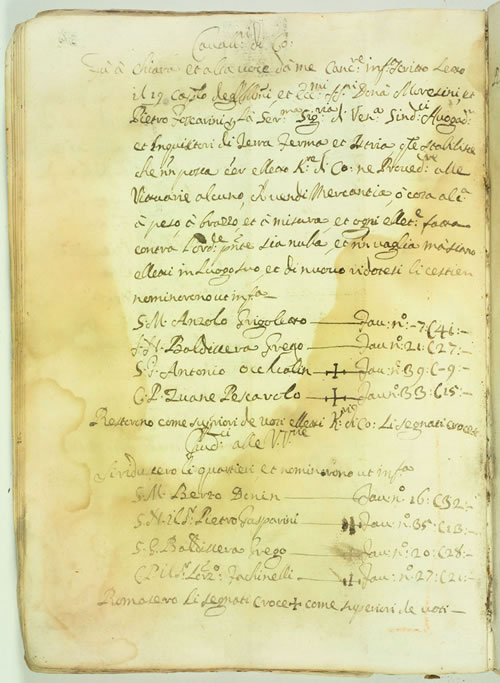 Cavau: di Co:
Qui à chiara et alta voce da me Canc.re infrascritto Letto
il 19 Cap.lo degl' Ill.mi et Ecc.mi SS.ri Donà Moresini et
Pietro Foscarini p la Ser.ma Sig.ria di Ven.a Sind.ci Avogad.ri
et Inquisitori di Terra Ferma et Istria
che non possa esser elleto K.re di Co: ne Proved.re alle
Vituarie alcuno, che vendi Mercantia, ò cosa alc.a
à peso, à brazzo et à misura, et ogni ellet.e fatta
contra l'ord.e pnte sia nulla, et in vaglia ma siano
elletti in Luogo suo et di nuovo ridotesi li
nominorono ut infra
S. M. Anzolo Frigoletto — Fau: n.o -7: C 41: –
S. N. Baldissera Frego — Fau: n.o 21: C 27: –
S. P. Antonio Occhialin — + — Fau: n.o 39: C -9: –
C. P. Zuane Pescarolo — + — Fau: n.o 33: C 15: –
Restorono come superiori de voti elletti K.ri di Co: Li segnati Croce +
alle V.
Si riducero li quartieri et nominorono ut infra
S. M. Berto Denin — Fau: n.o 16: C 32: –
S. N. il S.r Pietro Gasparini — + — Fau: n.o 35: C 13: –
S. P. Baldissera Frego — + — Fau: n.o 20: C 28: –
C. P. il S.r Lor.zo Fachinelli — + — Fau: n.o 27: C 21: –
Romasero Li segnati Croce + come superiori de voti —